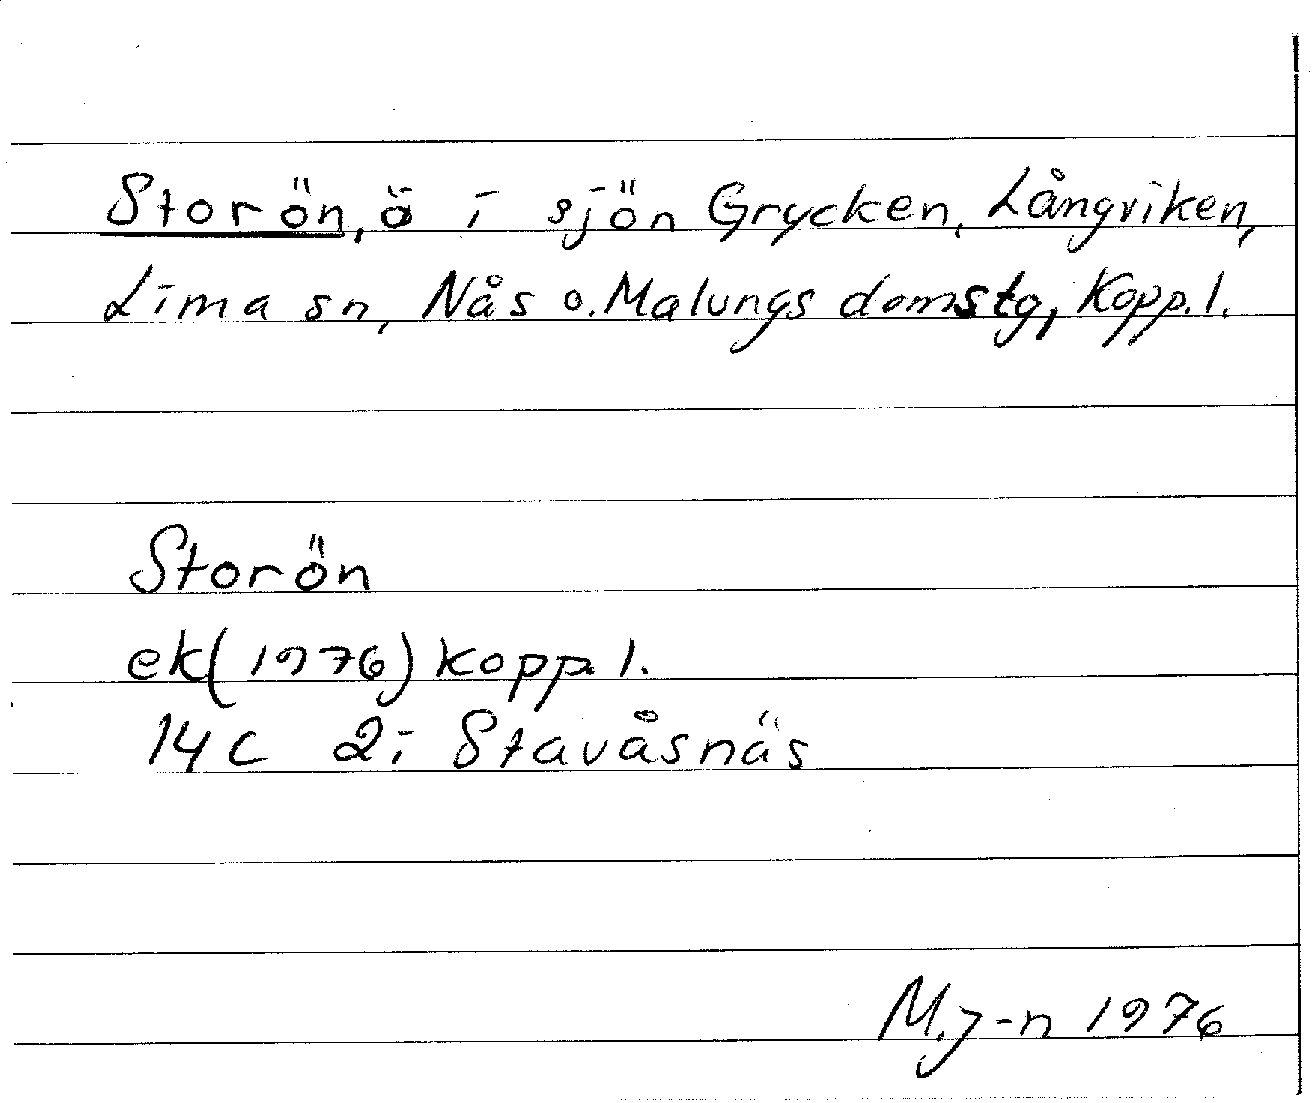 Storön, ö i sjön Grycken, Långviken,
Lima sn, Nås o. Malungs domstg, Kopp. l.
Storön
ek (1976) Kopp. l.
14 C 2 i Stavåsnäs
M. J-n 1976